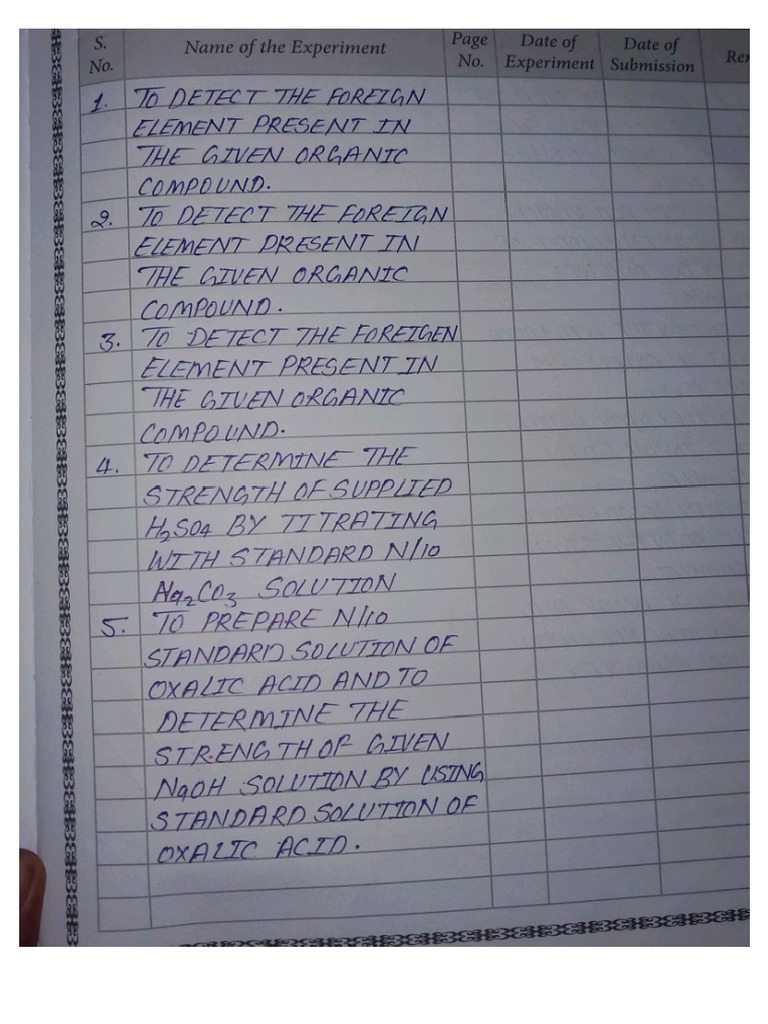 S. No. Name of the Experiment Page No. Date of Experiment Date of Submission
1. TO DETECT THE FOREIGN
ELEMENT PRESENT IN
THE GIVEN ORGANIC
COMPOUND.
2. TO DETECT THE FOREIGN
ELEMENT PRESENT IN
THE GIVEN ORGANIC
COMPOUND.
3. TO DETECT THE FOREIGEN
ELEMENT PRESENT IN
THE GIVEN ORGANIC
COMPOUND.
4. TO DETERMINE THE
STRENGTH OF SUPPLIED
H₂SO4 BY TITRATING
WITH STANDARD N/10
Na₂CO₃ SOLUTION
5. TO PREPARE N/10
STANDARD SOLUTION OF
OXALIC ACID AND TO
DETERMINE THE
STRENGTH OF GIVEN
NaOH SOLUTION BY USING
STANDARD SOLUTION OF
OXALIC ACID.